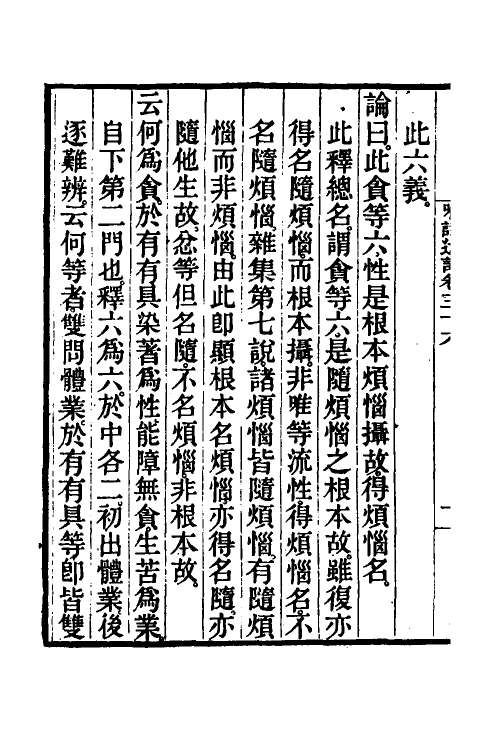 此六義。
論曰。此貪等六。性是根本煩惱攝故。得煩惱名。
此釋總名。謂貪等六。是隨煩惱之根本故。雖復亦
得名隨煩惱。而根本攝。非唯等流性。得煩惱名。不
名隨煩惱。雜集第七說。諸煩惱皆隨煩惱。有隨煩
惱而非煩惱。由此卽顯根本名煩惱。亦得名隨。亦
隨他生故。忿等但名隨。不名煩惱。非根本故。
云何爲貪。於有有具染著爲性。能障無貪。生苦爲業。
自下第二門也。釋六爲六。於中各二。初出體業。後
逐難辨。云何等者。雙問體業。於有有具等。卽皆雙